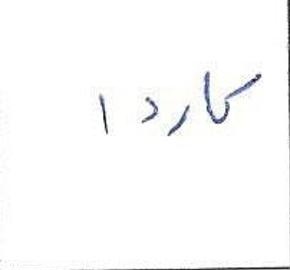 کارد ۱